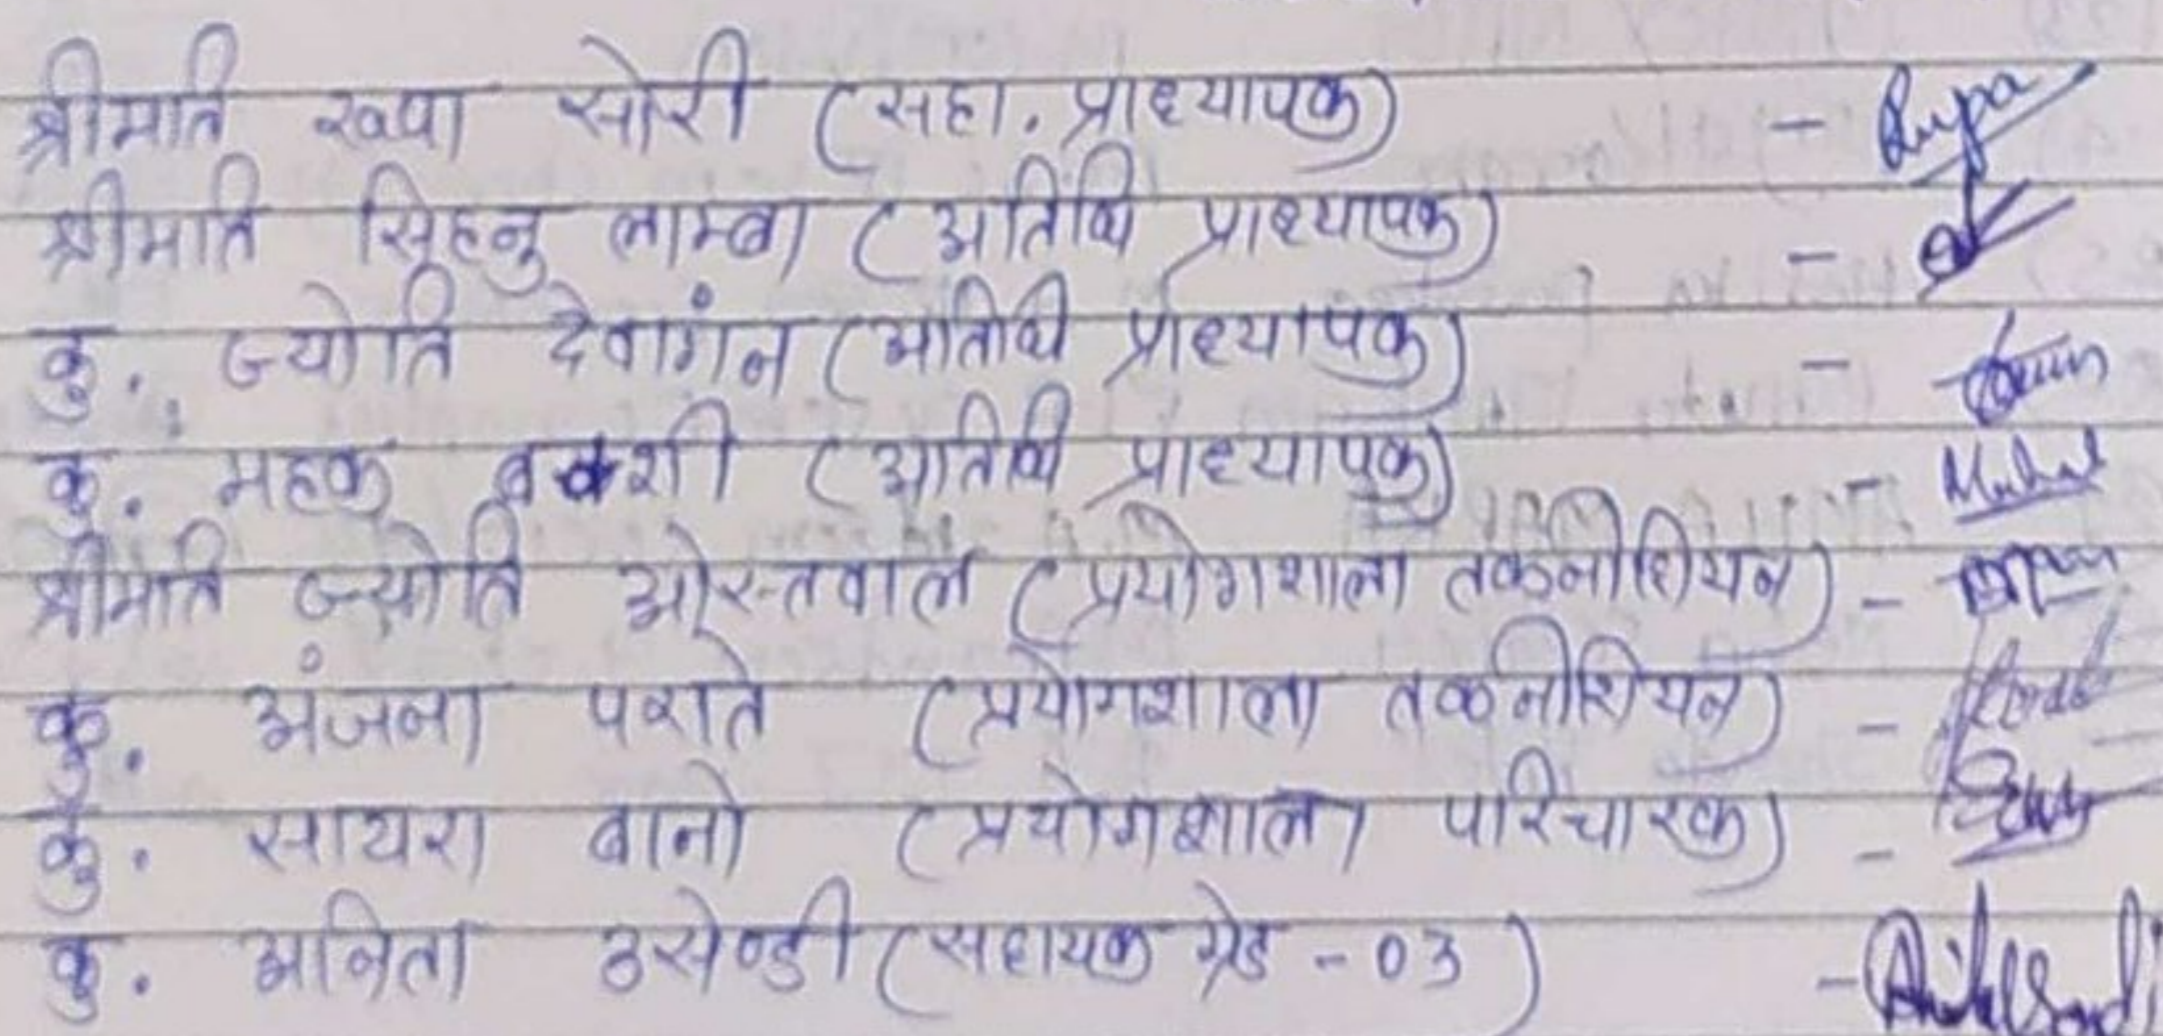 श्रीमति रूपा सोरी (सहा. प्राध्यापक) - Rupa
श्रीमति लाम्बा (अतिथि प्राध्यापक) -
कु. ज्योति देवांगन (अतिथि प्राध्यापक) -
कु. महक बक्शी (अतिथि प्राध्यापक) -
श्रीमति ज्योति ओस्तवाल (प्रयोगशाला तकनीशियन) -
कु. अंजना पराते (प्रयोगशाला तकनीशियन) -
कु. सायरा बानो (प्रयोगशाला परिचारक) -
कु. अनिता उसेण्डी (सहायक ग्रेड - 03) -